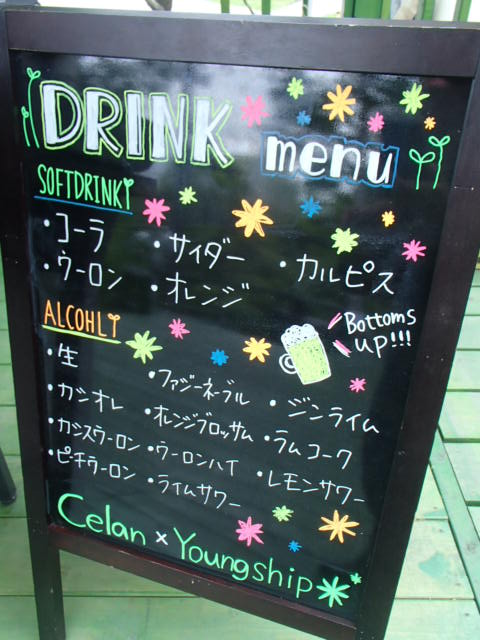 DRINK
menu
SOFTDRINK
・コーラ ・サイダー ・カルピス
・ウーロン ・オレンジ
ALCOHL
Bottoms
up!!!
・生 ・ファジーネーブル ・ジンライム
・カシオレ ・オレンジブロッサム ・ラムコーク
・カシスウーロン ・ウーロンハイ ・レモンサワー
・ピチウーロン ・ライムサワー
Celan × Youngship